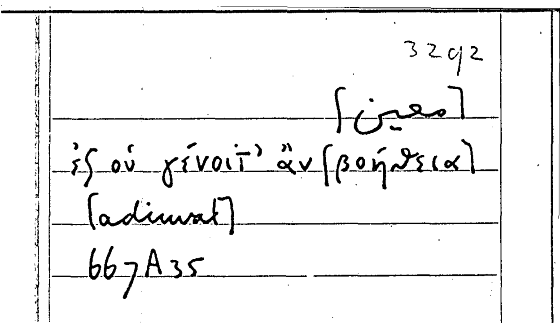 3292
[معين]
ἐξ οὗ γένοιτ' ἂν [βοήθεια]
[adiuvat]
667A35